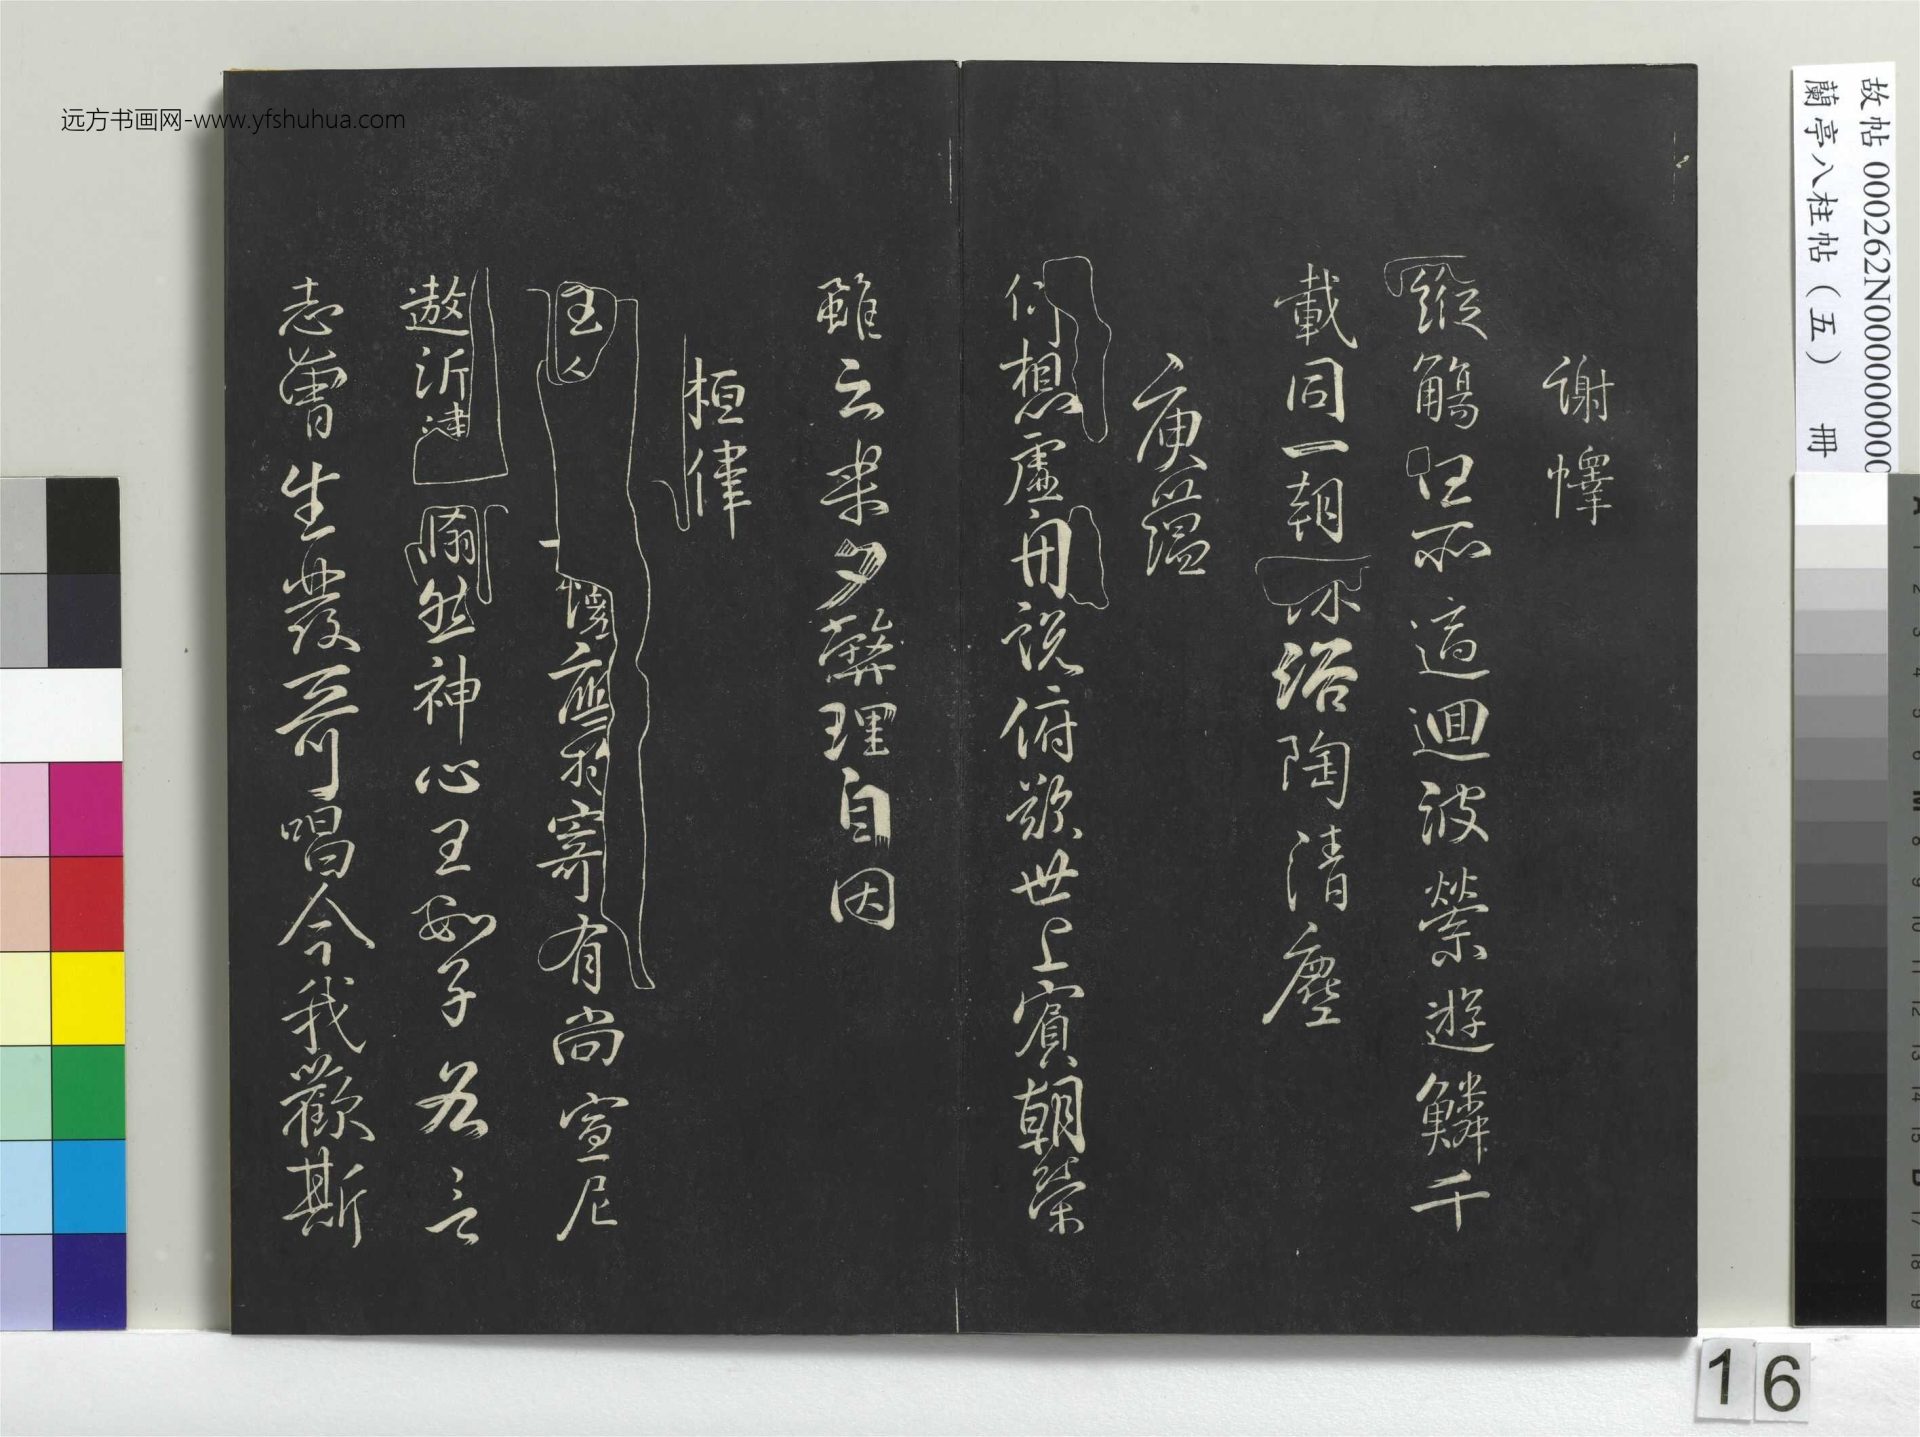 远方书画网-www.yfshuhua.com
故帖 000262N00000000
蘭亭八柱帖（五） 冊
謝懌
縱觴任所適迴波縈遊鱗千
載同一朝沐浴陶清塵
庾蘊
仰想虛舟說俯歎世上賓朝榮
雖云樂夕斃理自因
桓偉
主人懷應物寄有尚宣尼
遨沂津翛然神心王數子各言
志曾生發奇唱今我歡斯
16